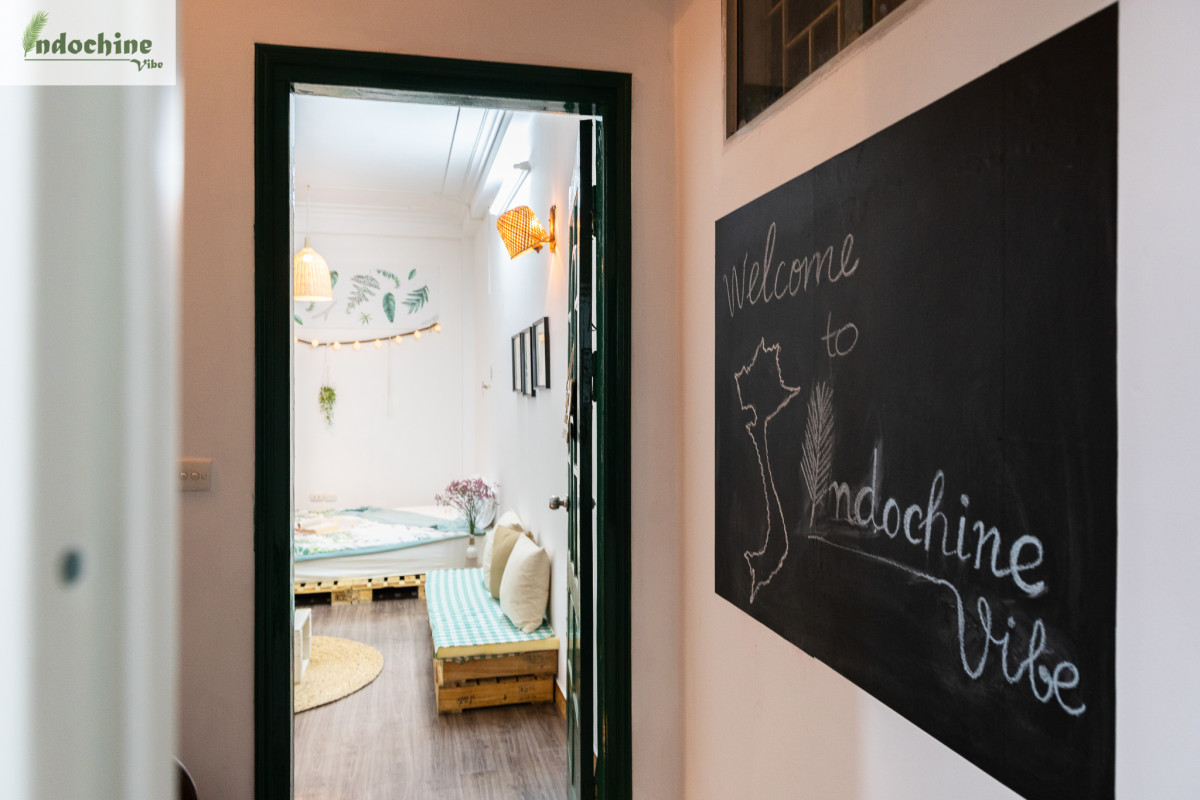 Indochine
Vibe
Welcome
to
Indochine
Vibe